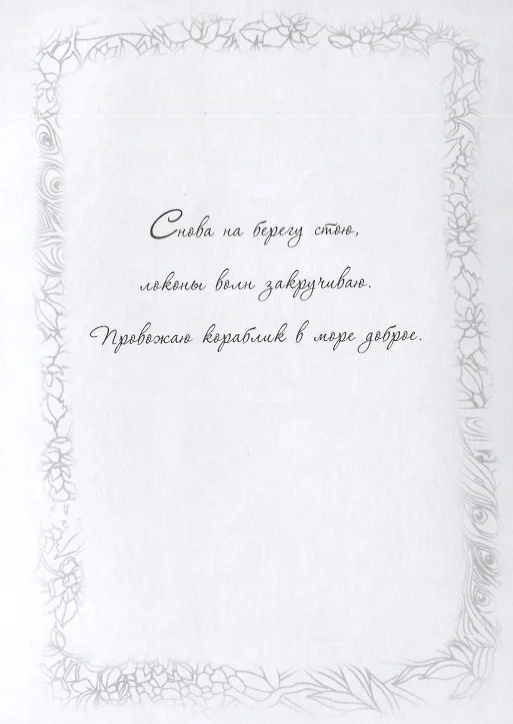 Снова на берегу стою,
локоны волн закручиваю.
Провожаю кораблик в море доброе.